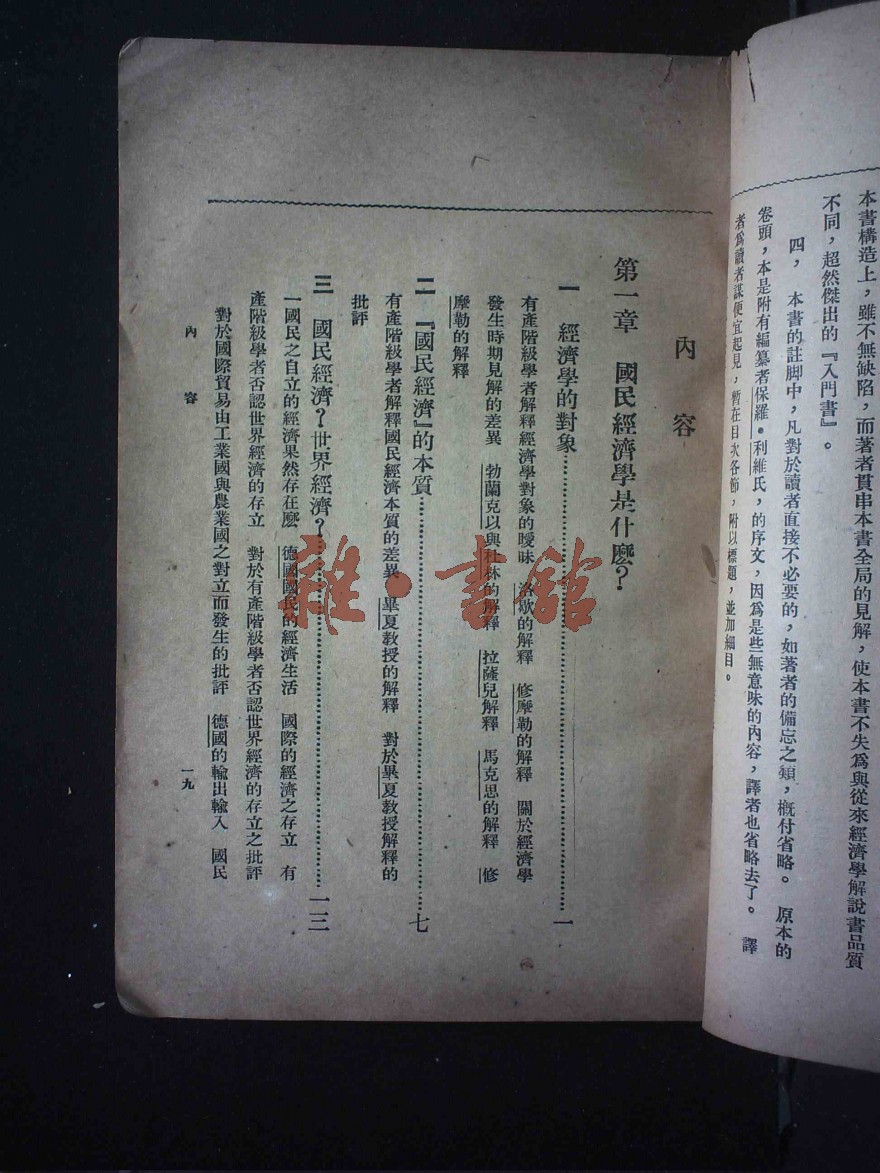 本書構造上，雖不無缺陷，而著者貫串本書全局的見解，使本書不失爲與從來經濟學解說書品質
不同，超然傑出的『入門書』。
四，本書的註脚中，凡對於讀者直接不必要的，如著者的備忘之類，概付省略。原本的
卷頭，本是附有編纂者保羅•利維氏，的序文，因爲是些無意味的內容，譯者也省略去了。譯
者爲讀者謀便宜起見，暫在目次各節，附以標題，並加細目。
內容
第一章 國民經濟學是什麽？
一 經濟學的對象……一
有產階級學者解釋經濟學對象的曖昧 洛歇的解釋 修摩勒的解釋 關於經濟學
發生時期見解的差異 勃蘭克以與杜林的解釋 拉薩兒解釋 馬克思的解釋 修
摩勒的解釋
二 『國民經濟』的本質……七
有產階級學者解釋國民經濟本質的差異 畢夏教授的解釋 對於畢夏教授解釋的
批評
三 國民經濟？世界經濟？……一三
一國民之自立的經濟果然存在麽 德國國民的經濟生活 國際的經濟之存立 有
產階級學者否認世界經濟的存立 對於有產階級學者否認世界經濟的存立之批評
對於國際貿易由工業國與農業國之對立而發生的批評 德國的輸出輸入 國民
內容
一九
雜•書館